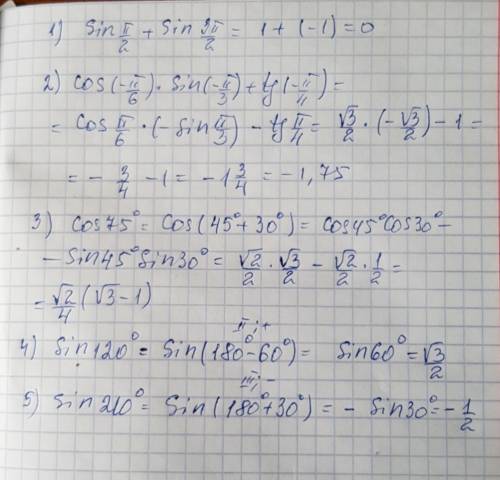 1) Sin π/2 + Sin 3π/2 = 1 + (-1) = 0
2) cos(-π/6) · Sin(-π/3) + tg(-π/4) =
= Cos π/6 · (-Sin π/3) - tg π/4 = √3/2 · (-√3/2) - 1 =
= - 3/4 - 1 = -1 3/4 = -1,75
3) Cos75° = Cos(45° + 30°) = Cos45°Cos30° -
- Sin45°Sin30° = √2/2 · √3/2 - √2/2 · 1/2 =
= √2/4 (√3 - 1)
II; +
4) Sin120° = Sin(180° - 60°) = Sin60° = √3/2
III; -
5) Sin210° = Sin(180° + 30°) = - Sin30° = - 1/2